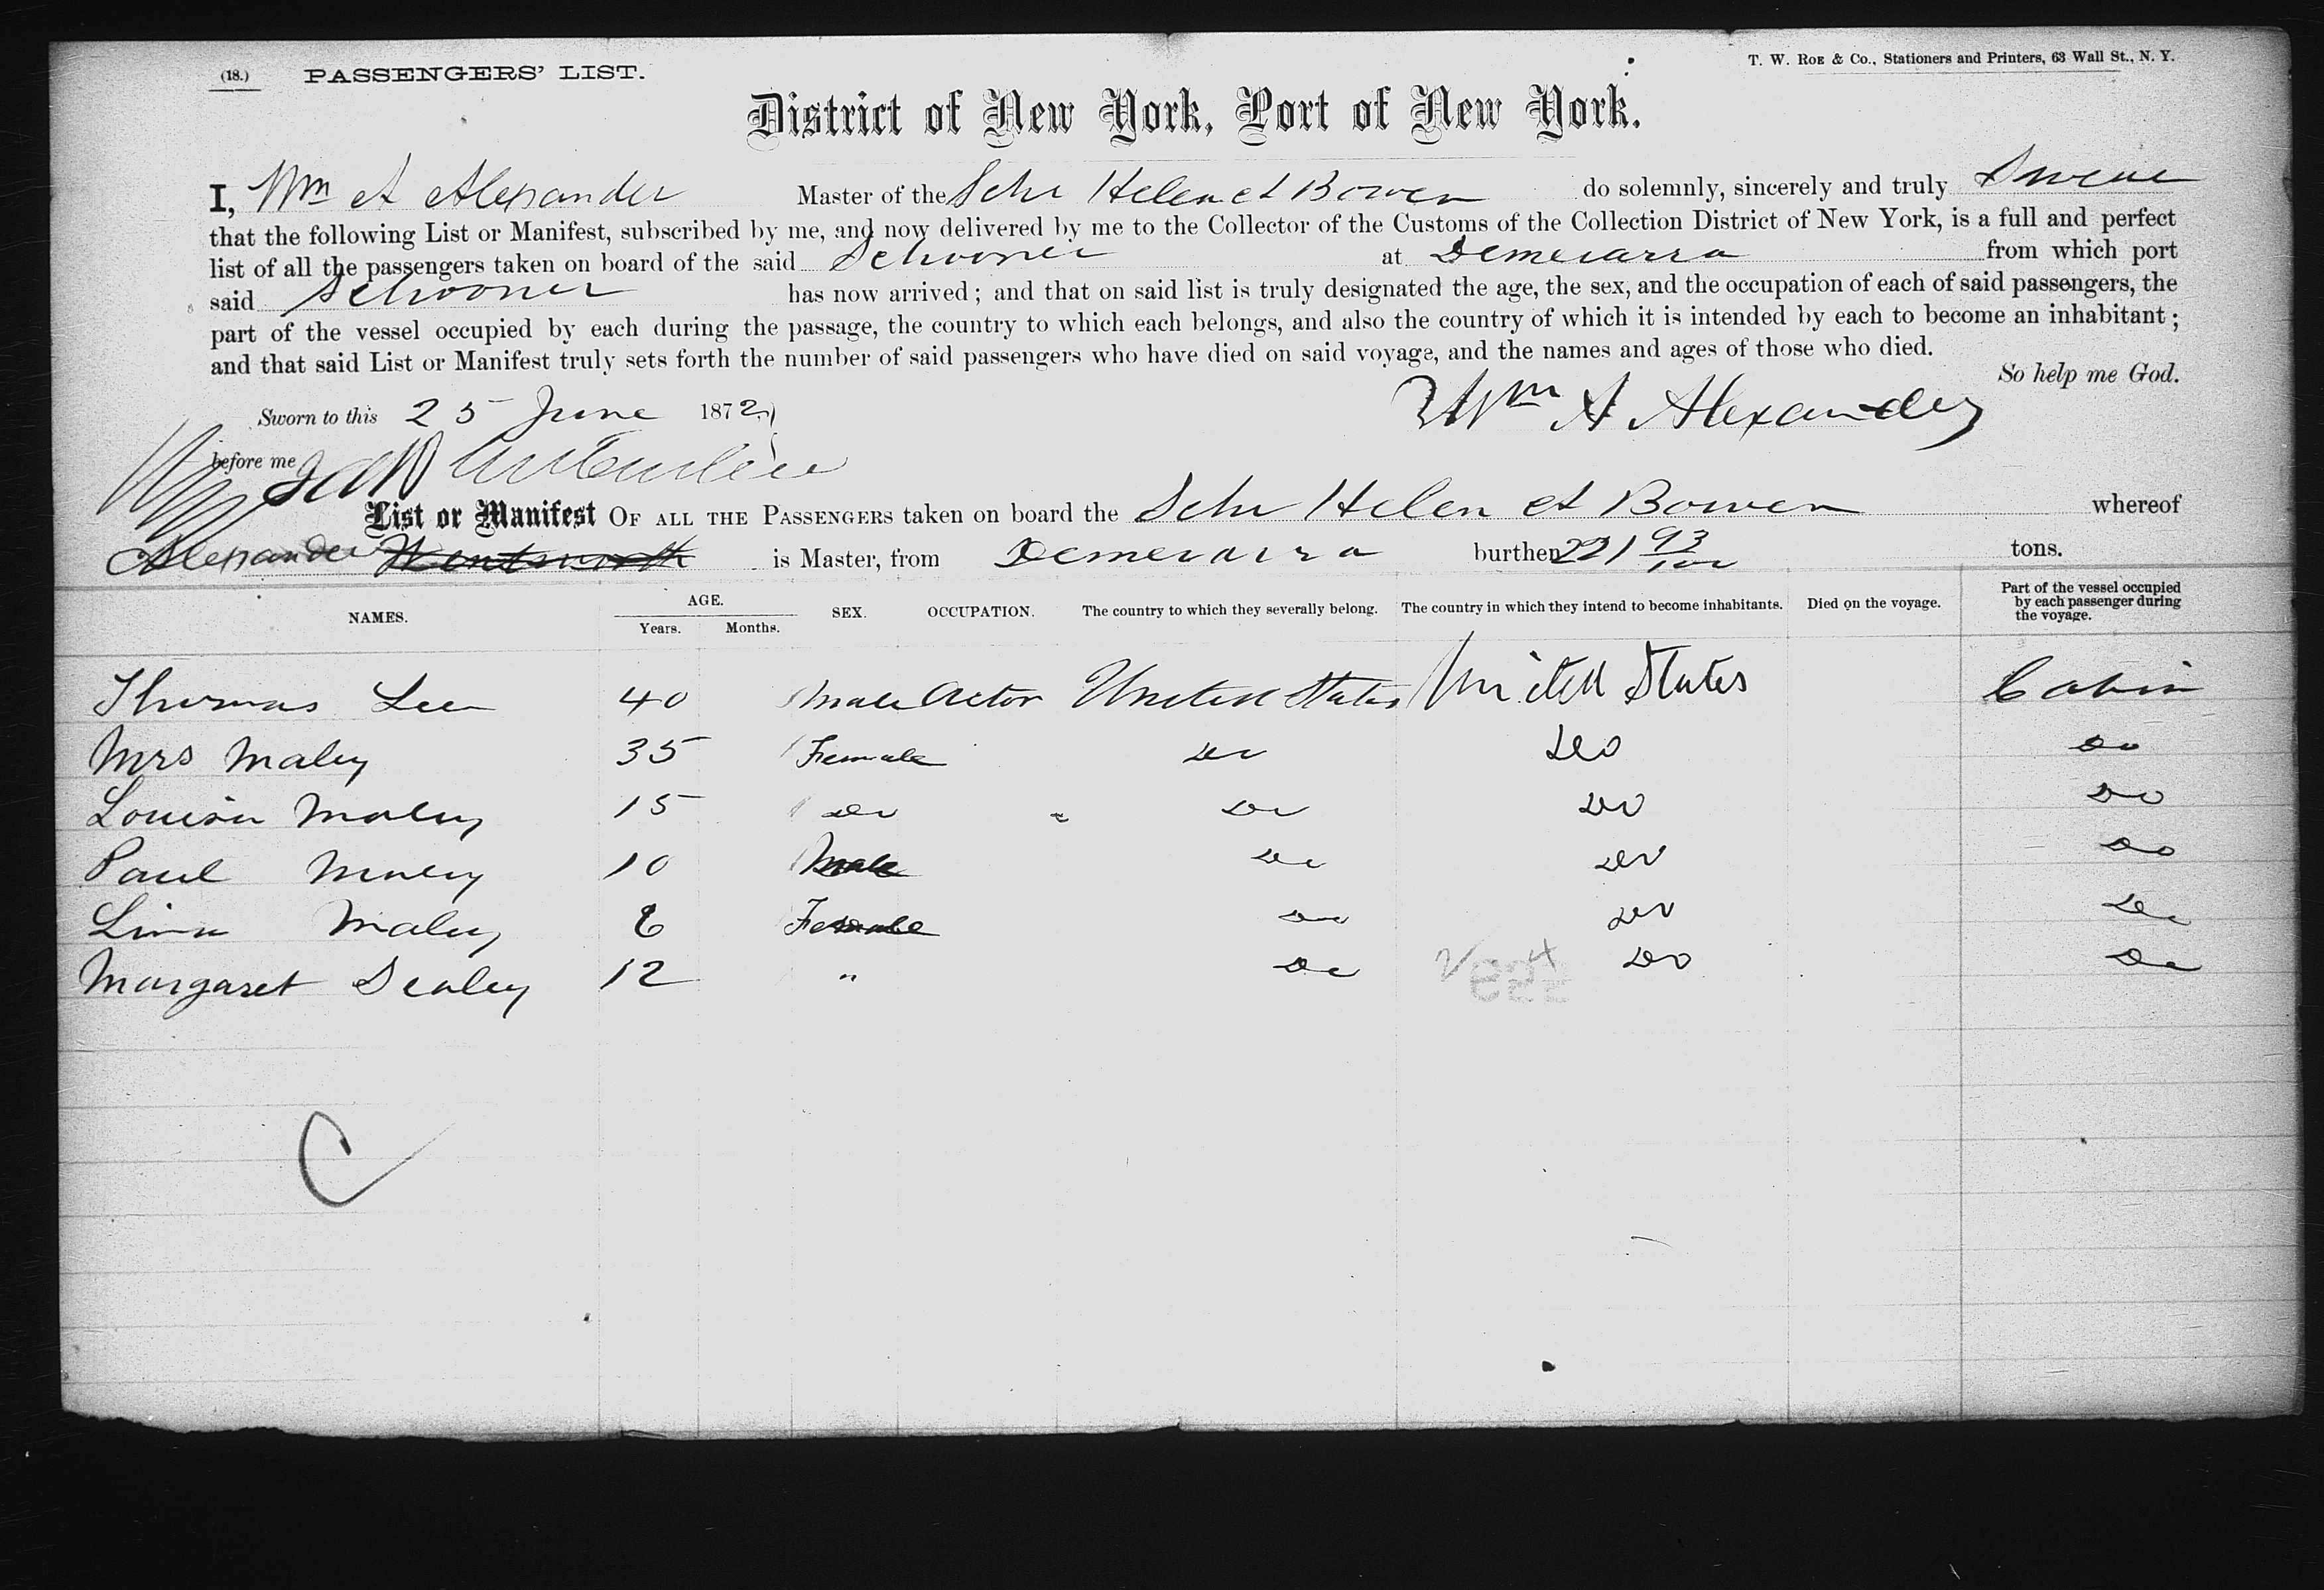 (18.) PASSENGERS' LIST. T. W. Roe & Co., Stationers and Printers, 63 Wall St., N. Y.
District of New York, Port of New York.
I, Wm A Alexander Master of the Schr Helen A Bowen do solemnly, sincerely and truly Swear
that the following List or Manifest, subscribed by me, and now delivered by me to the Collector of the Customs of the Collection District of New York, is a full and perfect
list of all the passengers taken on board of the said Schooner at Demerarra from which port
said Schooner has now arrived; and that on said list is truly designated the age, the sex, and the occupation of each of said passengers, the
part of the vessel occupied by each during the passage, the country to which each belongs, and also the country of which it is intended by each to become an inhabitant;
and that said List or Manifest truly sets forth the number of said passengers who have died on said voyage, and the names and ages of those who died.
So help me God.
Sworn to this 25 June 1872
Wm A Alexander
before me
List or Manifest OF ALL THE PASSENGERS taken on board the Schr Helen A Bowen whereof
Alexander Wentworth is Master, from Demerarra burthen 221 93/100 tons.
NAMES. AGE. Years. Months. SEX. OCCUPATION. The country to which they severally belong. The country in which they intend to become inhabitants. Died on the voyage. Part of the vessel occupied by each passenger during the voyage.
Thomas Lee 40 Male Actor United States United States Cabin
Mrs Maley 35 Female Do Do Do
Louisa Maley 15 Do Do Do Do
Paul Maley 10 Male Do Do Do
Lina Maley 6 Female Do Do Do
Margaret Dealey 12 " Do Do Do
C